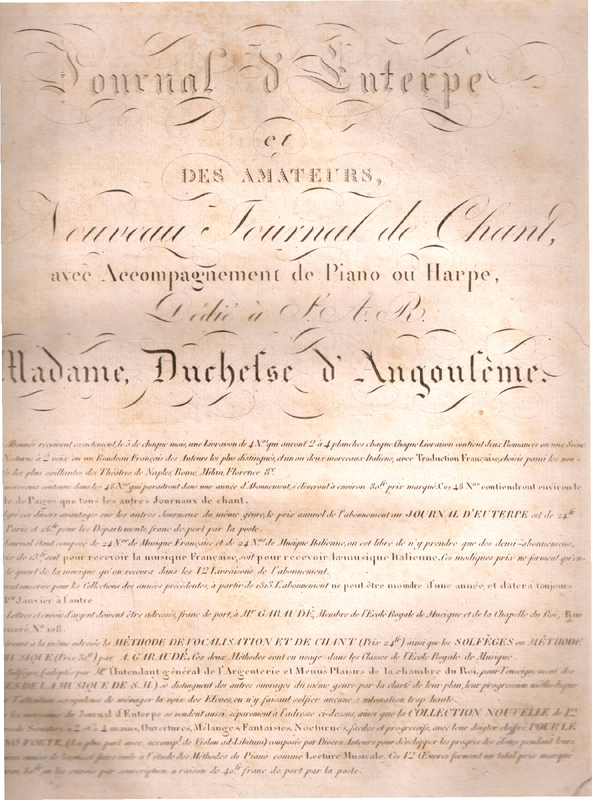 Journal d'Euterpe
et
DES AMATEURS,
Nouveau Journal de Chant,
avec Accompagnement de Piano ou Harpe,
Dédié à S. A. R.
Madame, Duchesse d'Angoulême.
Abonnés reçoivent exactement, le 5 de chaque mois, une Livraison de 4 Nos qui auront 2 à 4 planches chaque. Chaque Livraison contient deux Romances ou une Scène
Nocturne à 2 voix ou un Rondeau François des Auteurs les plus distingués, et un ou deux morceaux Italiens, avec Traduction Française, choisis parmi les
les plus saillantes des Théâtres de Naples, Rome, Milan, Florence &c.
morceaux contenus dans les 48 Nos qui paraîtront dans une année d'Abonnement, s'élèveront à environ prix marqué. Ces 48 Nos contiendront environ le
de Pages que tous les autres Journaux de chant.
ces divers avantages sur les autres Journaux du même genre, le prix annuel de l'abonnement au JOURNAL D'EUTERPE est de 24
Paris et pour les Départements, franc de port par la poste.
Journal étant composé de 24 Nos de Musique Française et de 24 Nos de Musique Italienne, on est libre de n'y prendre que des demi-abonnemens,
de soit pour recevoir la musique Française, soit pour recevoir la musique Italienne. Ces modiques prix ne forment
le quart de la musique qu'on recevra dans les 12 Livraisons de l'abonnement.
inscrire pour les Collections des années précédentes, à partir de 1813. L'abonnement ne peut être moindre d'une année et datera toujours
Janvier à l'autre
Lettres et envois d'argent doivent être adressés, franc de port, à Mr GARAUDÉ, Membre de l'Ecole Royale de Musique et de la Chapelle du Roi, Rue
No 108.
à la même adresse la MÉTHODE DE VOCALISATION ET DE CHANT (Prix 24) ainsi que les SOLFÈGES ou MÉTHODE
MUSIQUE (Prix) par A. GARAUDÉ. Ces deux Méthodes sont en usage dans les Classes de l'Ecole Royale de Musique.
Solfèges, adoptés par Mr l'Intendant général de l'Argenterie et Menus Plaisirs de la chambre du Roi, pour l'enseignement des
DE LA MUSIQUE DE S. M. se distinguent des autres ouvrages du même genre par la clarté de leur plan, leur progression méthodique
l'attention scrupuleuse de ménager la voix des Elèves, en n'y faisant solfier aucune intonation trop haute.
du Journal d'Euterpe se vendent aussi séparément à l'adresse ci-dessus, ainsi que la COLLECTION NOUVELLE DE 12
de Sonates à 2 et à 4 mains, Ouvertures, Mélanges, Fantaisies, Nocturnes, faciles et progressifs, avec leur doigter chiffré, POUR LE
FORTE, (La plus part avec accompt de Violon ad-Libitum) composée par Divers Auteurs pour développer les progrès des élèves pendant leurs
à l'étude des Méthodes de Piano comme Lecture Musicale. Ces 12 Œuvres forment un total prix marqué
on les envoie par souscription, à raison de franc de port par la poste.